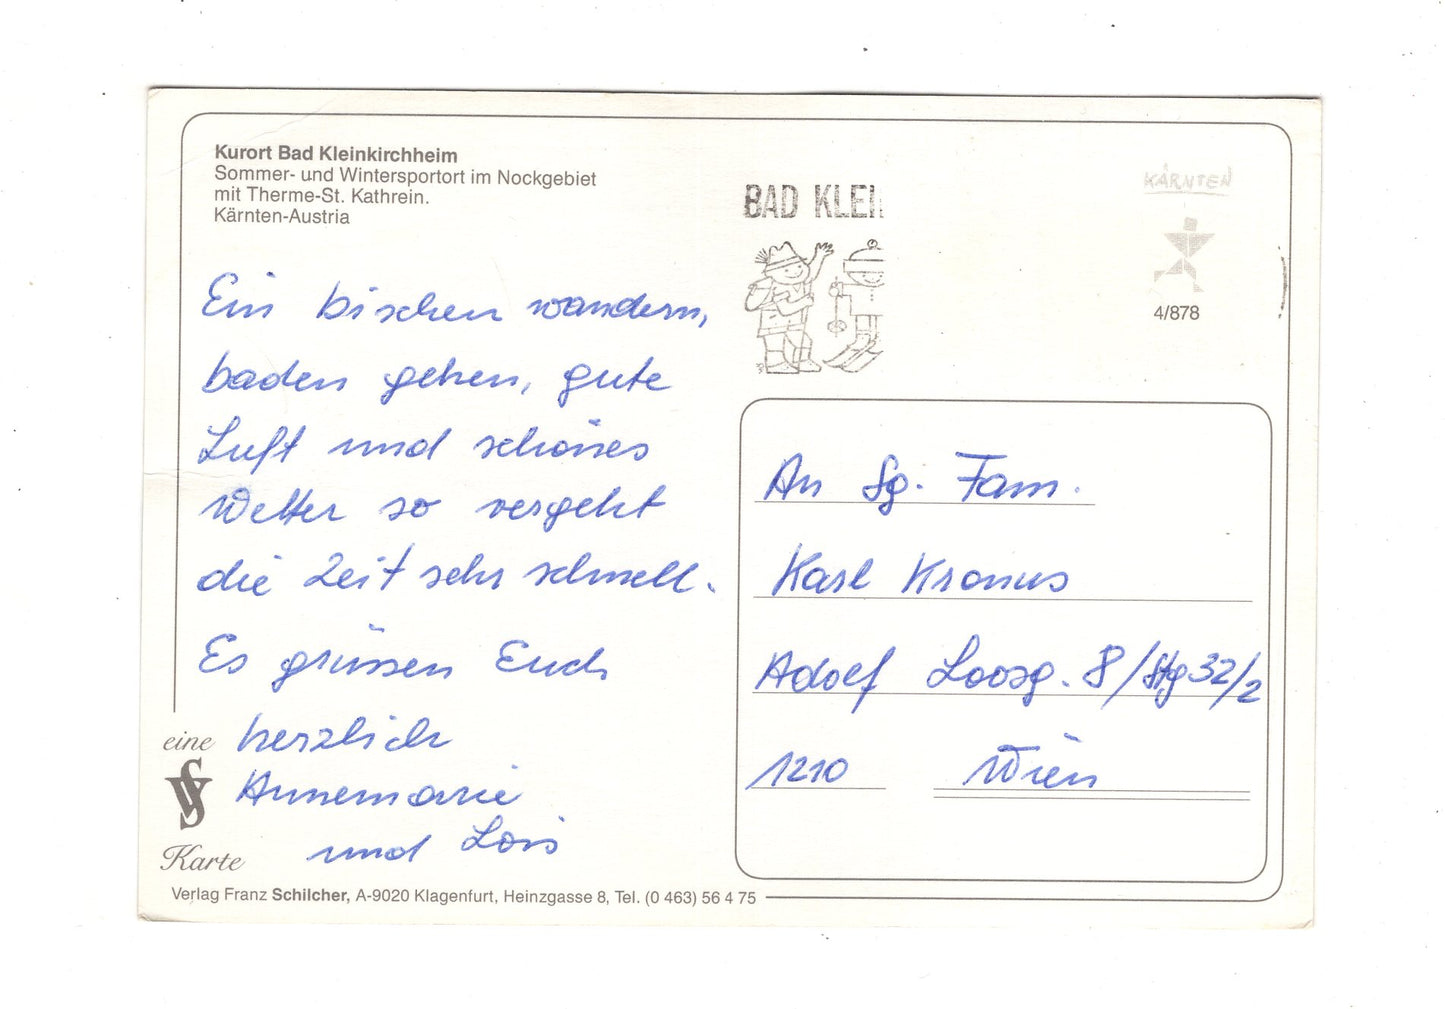 Kurort Bad Kleinkirchheim
Sommer- und Wintersportort im Nockgebiet
mit Therme-St. Kathrein.
Kärnten-Austria
Ein bischen wandern,
baden gehen, gute
Luft und schönes
Wetter so vergeht
die Zeit sehr schnell.
Es grüssen Euch
herzlich
Annemarie
und Lois
eine
Karte
Verlag Franz Schilcher, A-9020 Klagenfurt, Heinzgasse 8, Tel. (0 463) 56 4 75
BAD KLEI
KÄRNTEN
4/878
An Fam.
Karl Kronus
Adolf Loosg. 8/Stg 32/2
1210 Wien